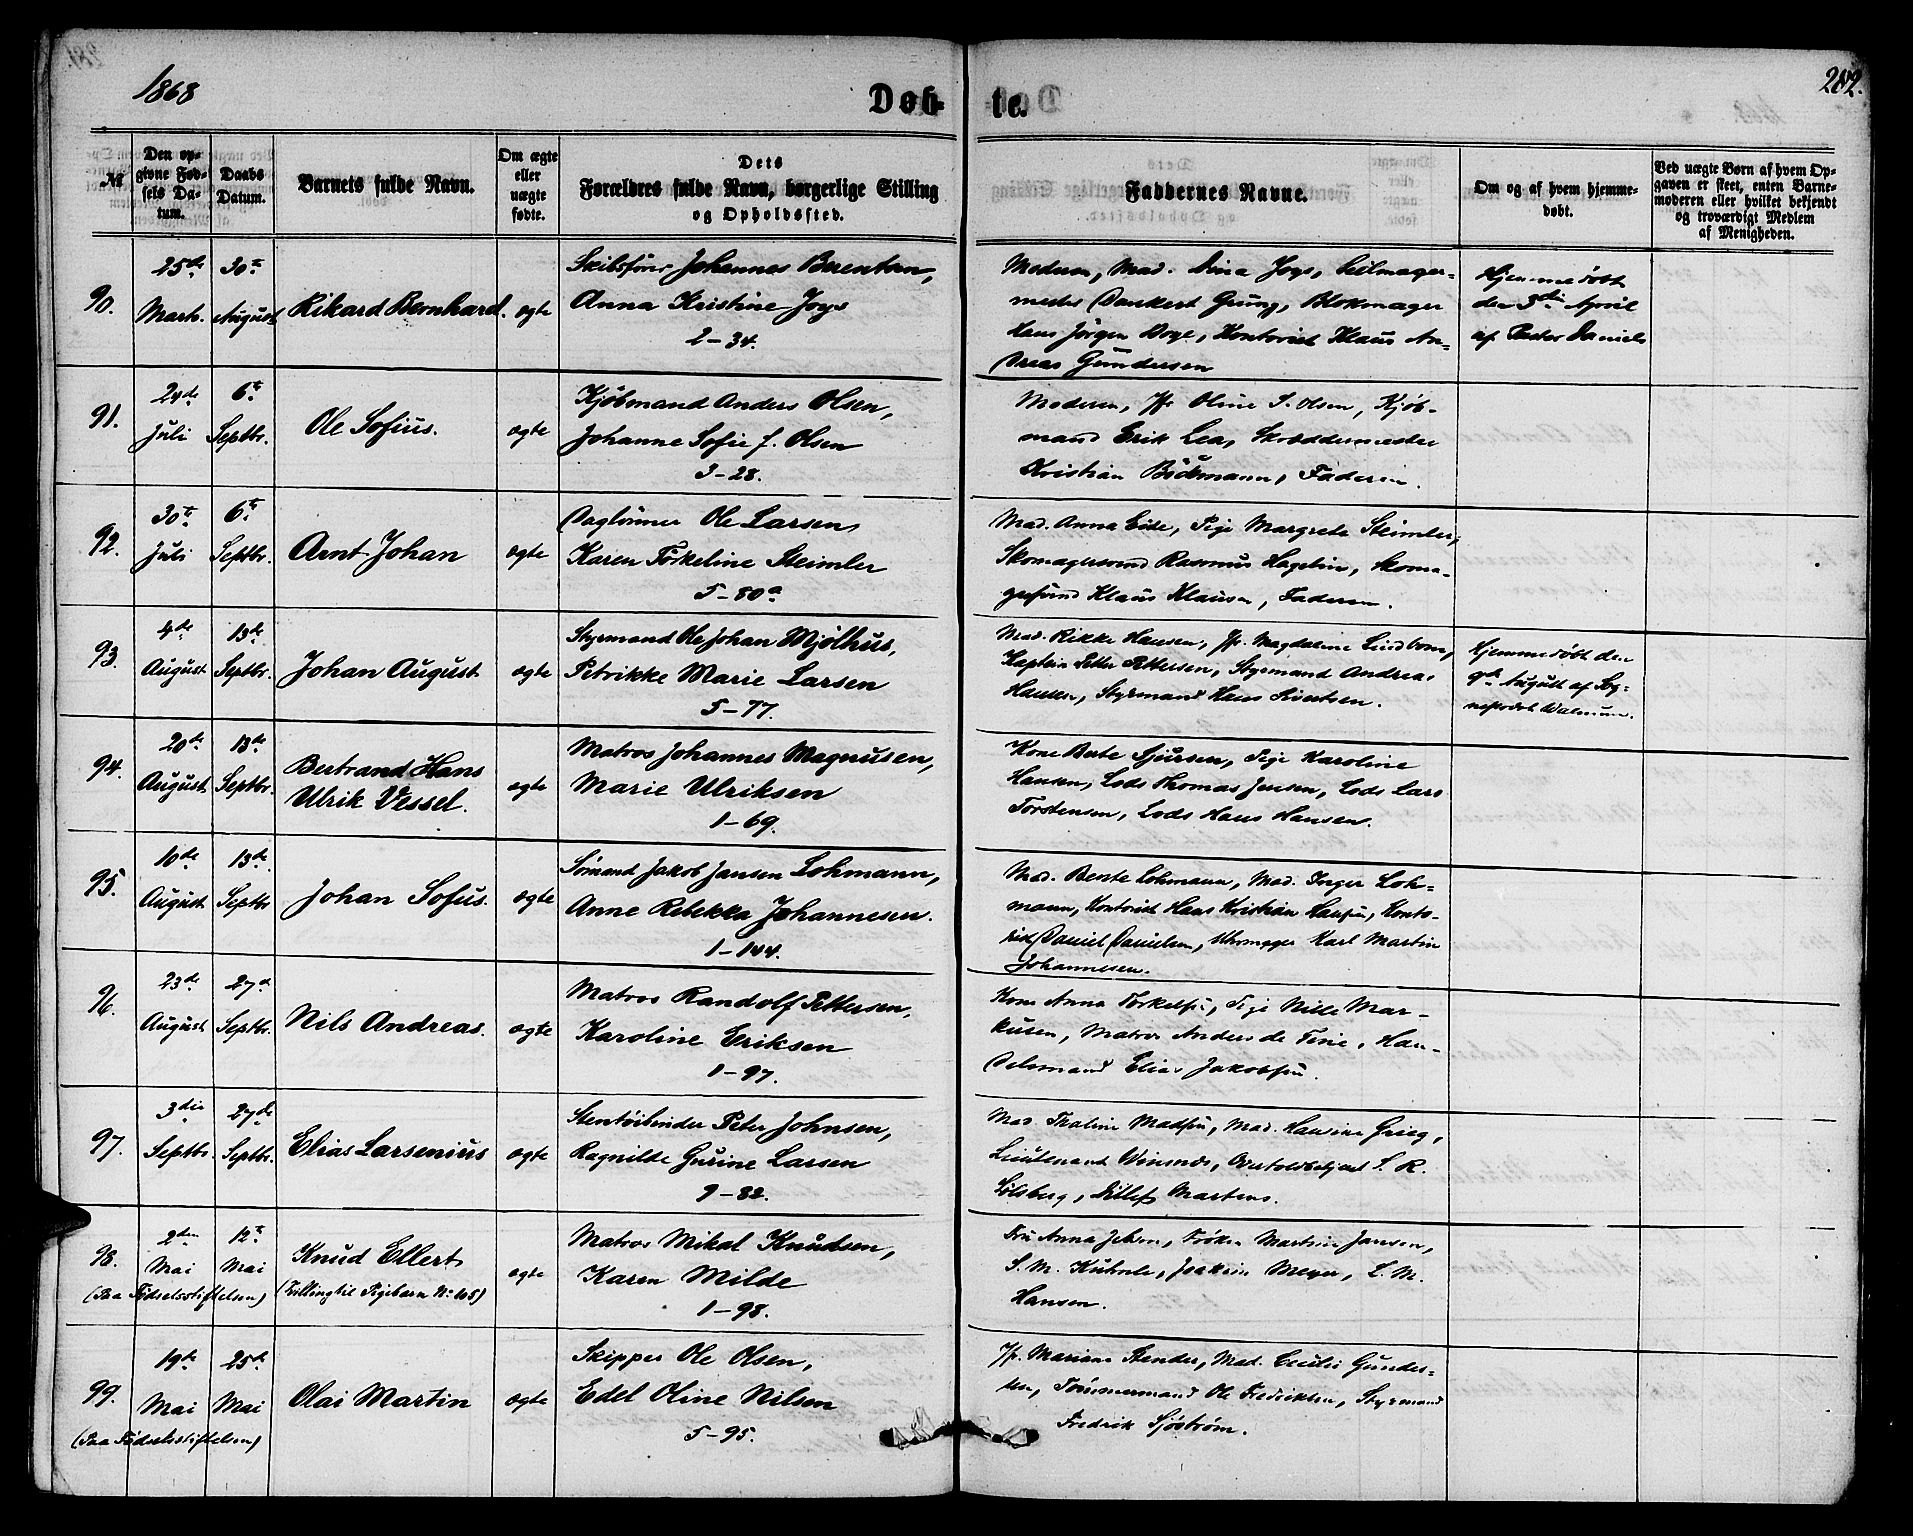 1868
Døb-
te.
282.
№
Den op-
givne Fød-
sels Da-
tum.
Daabs
Datum.
Barnets fulde Navn.
Om ægte
eller
uægte
fødte.
Dets
Forældres fulde Navn, borgerlige Stilling
og Opholdssted.
Faddernes Navne.
Om og af hvem hjemme-
døbt.
Ved uægte Børn af hvem Op-
gaven er skeet, enten Barne-
moderen eller hvilket bekjendt
og troværdigt Medlem
af Menigheden.
90.
25de
Marts.
30te
August
Rikard Bernhard.
ægte
Skibsfører Johannes Berentsen,
Anna Kristine Joys
2-34.
Moderen, Mad. Dina Joys, Seilmager-
mester Dankert Grung, Blokmager
Hans Jørgen Unge, Kontorist Klaus An-
dreas Gundersen
Hjemmedøbt
den 3die April
af Pastor Daniels
91.
24de
Juli
6te
Septbr.
Ole Sofius.
ægte
Kjøbmand Anders Olsen,
Johanne Sofie f. Olsen
3-28.
Moderen, Jfr Oline S. Olsen, Kjøb-
mand Erik Lea, Skræddermester
Kristian Böckmann, Faderen.
92.
30te
Juli
6te
Septbr.
Arnt Johan
ægte
Daglønner Ole Larsen,
Karen Torkeline Steimler
5-80a
Mad. Anna Eide, Pige Margrete Steimler,
Skomagersvend Rasmus Hagelin, Skoma-
gersvend Klaus Klausen, Faderen.
93.
4de
August
13de
Septbr.
Johan August
ægte
Styrmand Ole Johan Mjølhus,
Petrikke Marie Larsen
5-77.
Mad. Rikke Hansen, Jfr. Magdalene Lindbom,
Kaptein Petter Pettersen, Styrmand Andreas
Hansen, Styrmand Hans Sivertsen.
Hjemmedøbt den
9de August af Sog-
nepræst Walnum.
94.
20de
August
13de
Septbr.
Bertrand Hans
Ulrik Vessel.
ægte
Matros Johannes Magnusen,
Marie Ulriksen
1-69.
Kone Berte Sjursen, Pige Karoline
Hansen, Lods Thomas Jensen, Lods Lars
Torstensen, Lods Hans Hansen.
95.
10de
August
13de
Septbr
Johan Sofus.
ægte
Sømand Jakob Jansen Lohmann,
Anne Rebekka Johannesen.
1-144.
Mad. Berte Lohmann, Mad. Inger Loh-
mann, Kontorist Hans Kristian Hansen, Konto-
rist Daniel Danielsen, Uhrmager Karl Martin
Johannesen.
96.
23de
August
27de
Septbr.
Nils Andreas.
ægte
Matros Randolf Pettersen,
Karoline Eriksen
1-97.
Kone Anna Torkelsen, Pige Nille Mar-
kusen, Matros Anders de Fine, Han-
delsmand Elias Jakobsen.
97.
3die
Septbr.
27de
Septbr.
Elias Larsenius
ægte
Stentøibinder Peter Johnsen,
Ragnilde Gurine Larsen
9-82.
Mad. Thaline Madsen, Mad. Hansine Grieg,
Lieutenant Winsnes, Overtoldbetjent S. R.
Solsberg, Ditlef Martens.
98.
2den
Mai
12te
Mai
(Paa Fødselsstiftelsen)
Knud Ellert
(Tvilling til Pigebarn No 105)
ægte
Matros Mikal Knudsen,
Karen Milde
1-98.
Fru Anna Jebsen, Frøken Martine Jansen,
S. M. Kuhnle, Joakim Meyer, L. M.
Hansen.
99.
19de
Mai
25de
Mai
(Paa Fødselsstiftelsen)
Olai Martin
ægte
Skipper Ole Olsen,
Edel Oline Nilsen
5-95.
Jfr. Mariane Stender, Mad. Cecilie Gunder-
sen, Tømmermand Ole Fredriksen, Styrmand
Fredrik Sjøstrøm.